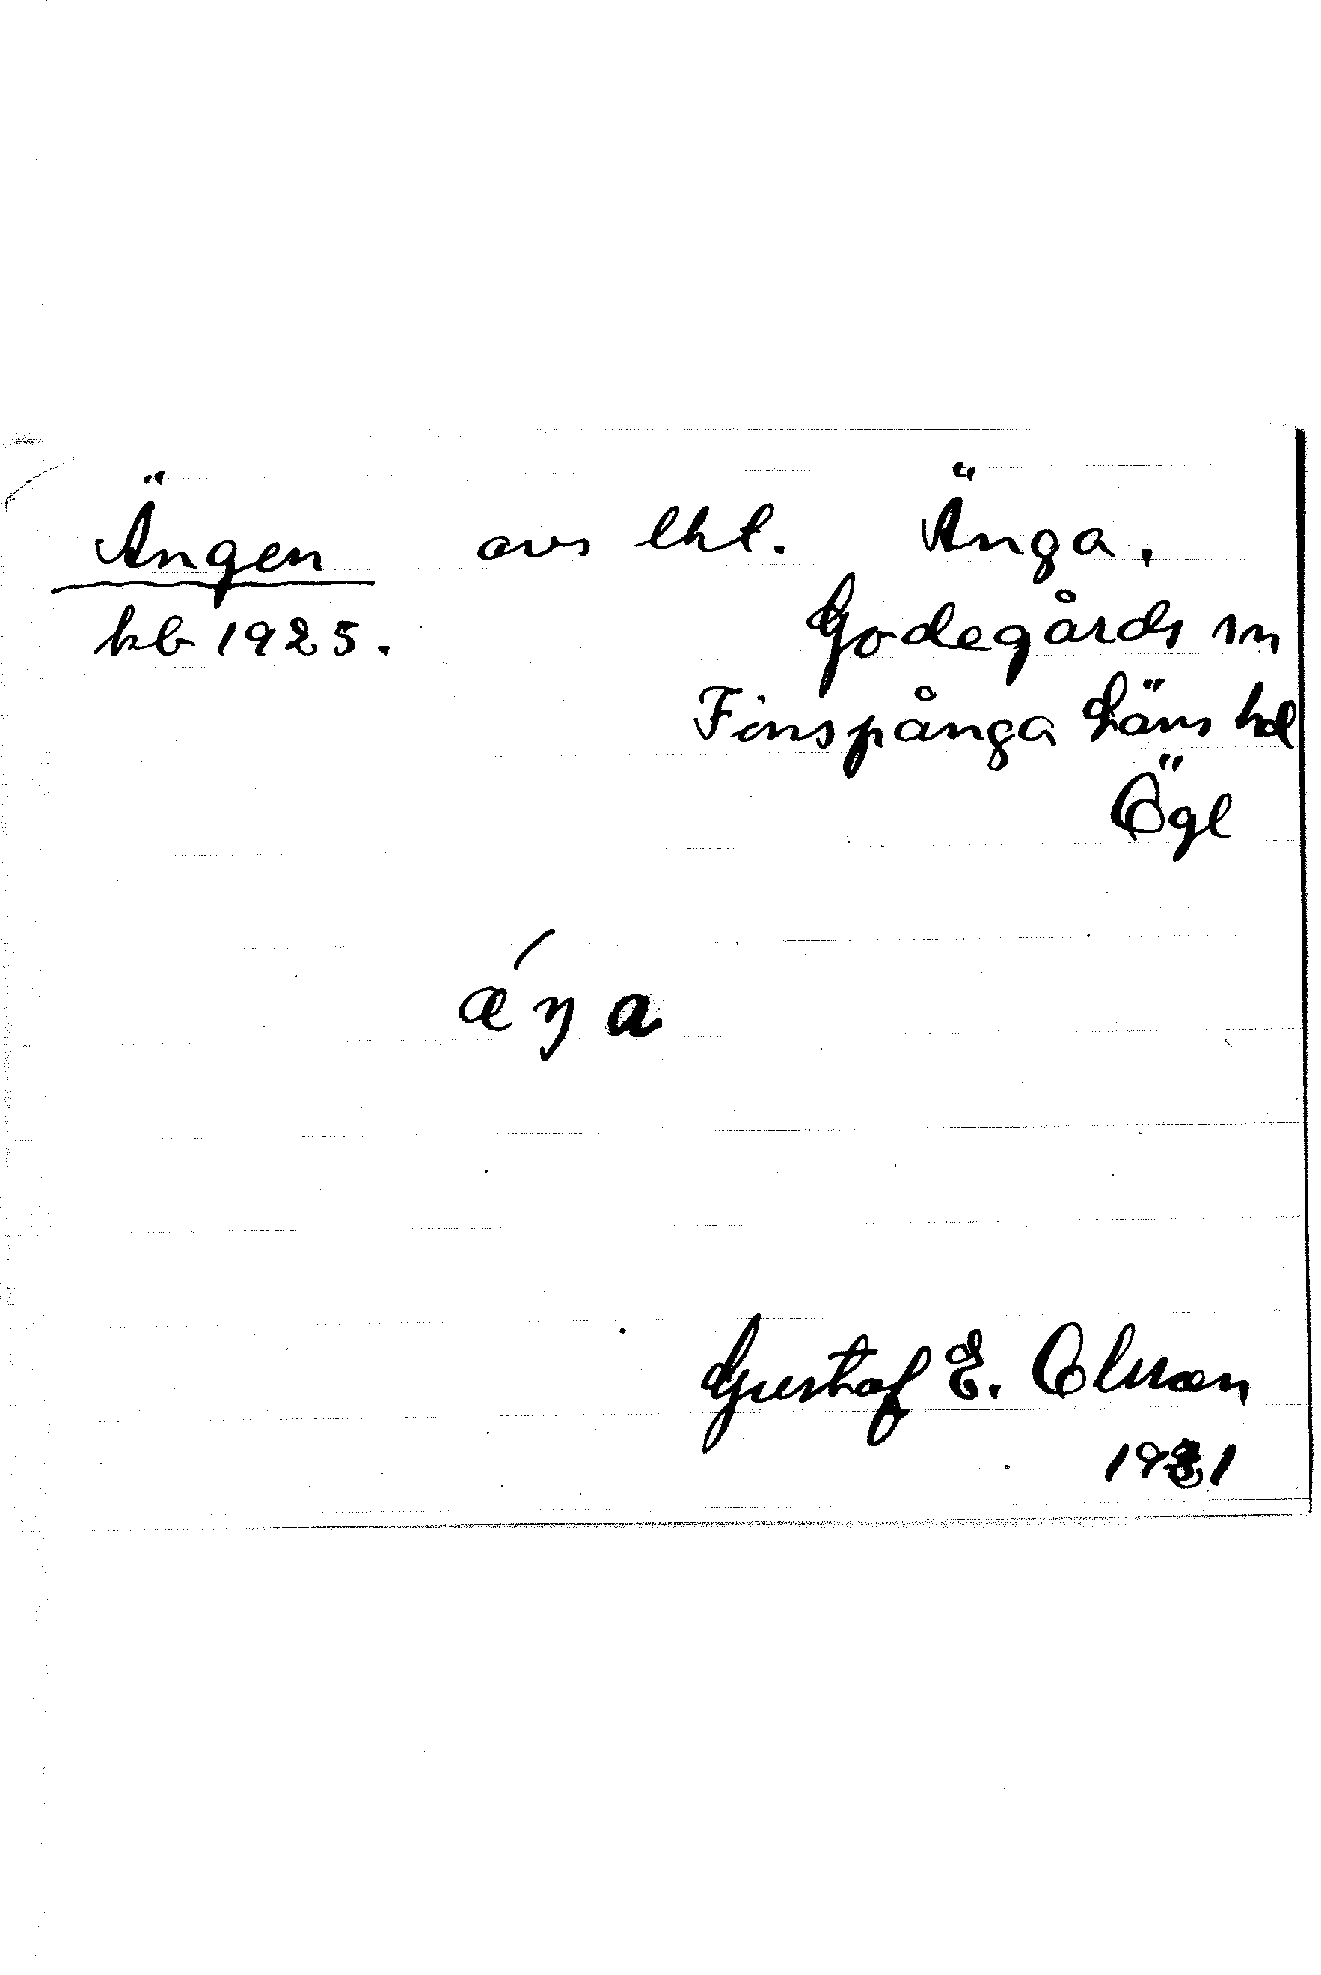 Ängen avs lht. Änga.
kb 1925. Godegårds sn
Finspånga läns hd
Ögl
ǽŋa
Gustaf E. Olsson